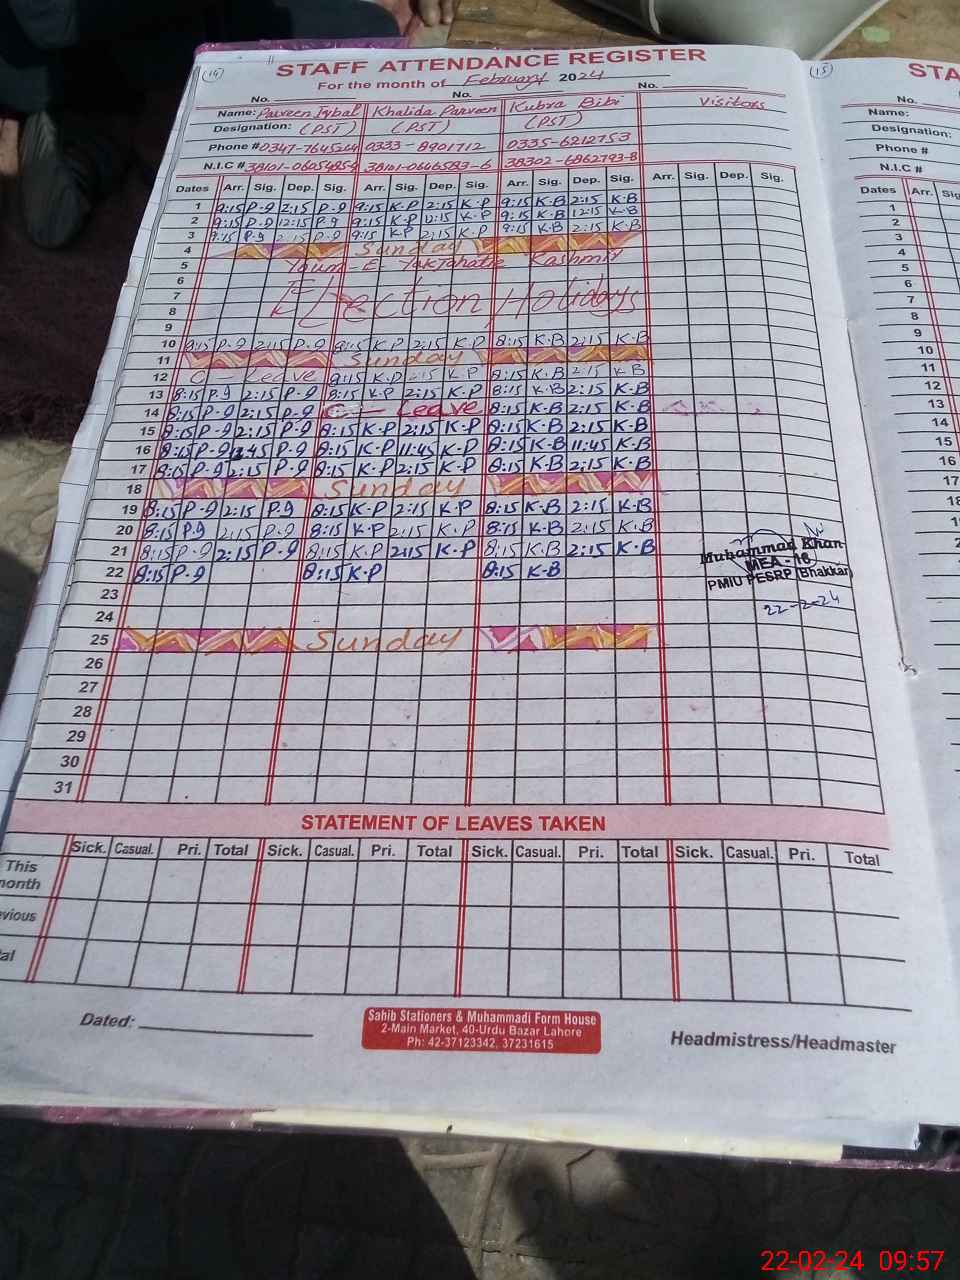 (14)
STAFF ATTENDANCE REGISTER
For the month of February 2024
No. No. No.
Name: Parveen Iqbal Khalida Parveen Kubra Bibi Visitors
Designation: (PST) (PST) (PST)
Phone # 0347-7645244 0333-8901712 0335-6212753
N.I.C # 38101-0605485-4 38101-0646583-6 38302-6862793-8
Dates Arr. Sig. Dep. Sig. Arr. Sig. Dep. Sig. Arr. Sig. Dep. Sig. Arr. Sig. Dep. Sig.
1 9:15 P.9 2:15 P.9 9:15 K.P 2:15 K.P 9:15 K.B 2:15 K.B
2 9:15 P.9 12:15 P.9 9:15 K.P 12:15 K.P 9:15 K.B 12:15 K.B
3 9:15 P.9 2:15 P.9 9:15 K.P 2:15 K.P 9:15 K.B 2:15 K.B
4 Sunday
5 Youm-E- Kashmir
6
7 Election Holidays
8
9
10 9:15 P.9 2:15 P.9 8:15 K.P 2:15 K.P 8:15 K.B 2:15 K.B
11 Sunday
12 C - Leave 8:15 K.P 2:15 K.P 8:15 K.B 2:15 K.B
13 8:15 P.9 2:15 P.9 8:15 K.P 2:15 K.P 8:15 K.B 2:15 K.B
14 8:15 P.9 2:15 P.9 C - Leave 8:15 K.B 2:15 K.B
15 8:15 P.9 2:15 P.9 8:15 K.P 2:15 K.P 8:15 K.B 2:15 K.B
16 8:15 P.9 P.9 8:15 K.P 11:45 K.P 8:15 K.B 11:45 K.B
17 8:15 P.9 2:15 P.9 8:15 K.P 2:15 K.P 8:15 K.B 2:15 K.B
18 Sunday
19 8:15 P.9 2:15 P.9 8:15 K.P 2:15 K.P 8:15 K.B 2:15 K.B
20 8:15 P.9 2:15 P.9 8:15 K.P 2:15 K.P 8:15 K.B 2:15 K.B
21 8:15 P.9 2:15 P.9 8:15 K.P 2:15 K.P 8:15 K.B 2:15 K.B
22 8:15 P.9 8:15 K.P 8:15 K.B
Muhammad Khan
MEA - 16
PMIU PESRP (Bhakkar)
22-2-24
23
24
25 Sunday
26
27
28
29
30
31
STATEMENT OF LEAVES TAKEN
Sick. Casual. Pri. Total Sick. Casual. Pri. Total Sick. Casual. Pri. Total Sick. Casual. Pri. Total
This
month
evious
al
Dated:
Sahib Stationers & Muhammadi Form House
2-Main Market, 40-Urdu Bazar Lahore
Ph: 42-37123342, 37231615
Headmistress/Headmaster
(15)
STA
No.
Name:
Designation:
Phone #
N.I.C #
Dates Arr. Sig
1
2
3
4
5
6
7
8
9
10
11
12
13
14
15
16
17
18
19
20
21
22-02-24 09:57